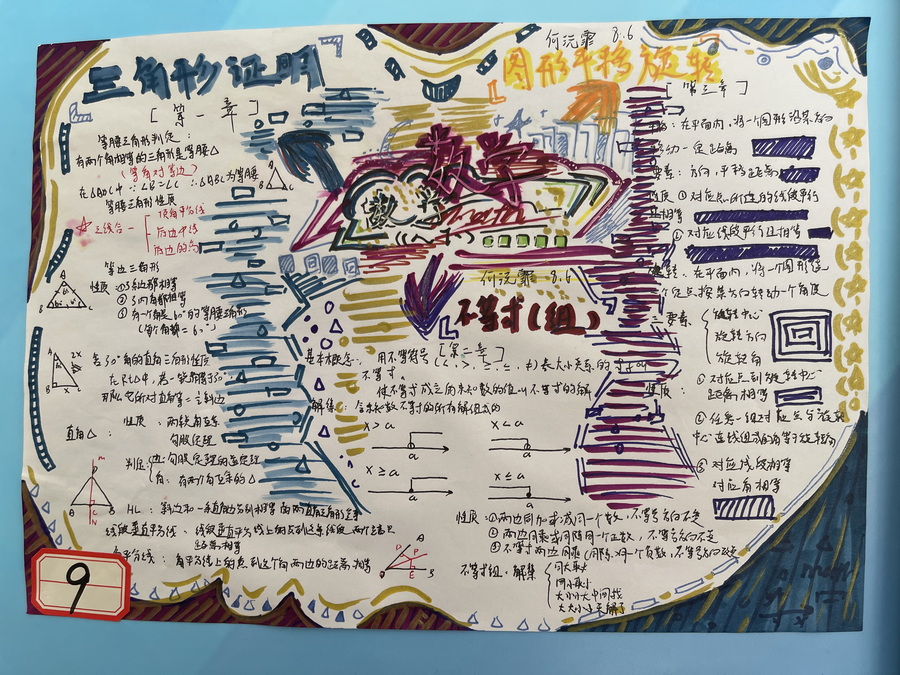 三角形证明
[第一章]
等腰三角形判定：
有两个角相等的三角形是等腰△
(等角对等边)
在△ABC中 ∵∠B=∠C ∴△ABC为等腰
等腰三角形性质
三线合一
顶角平分线
底边中线
底边的高
等边三角形
性质 ①3边都相等
②3个角都相等
③有一个角是60°的等腰三角形
(每个角都=60°)
含30°角的直角三角形性质
在Rt△中，若一锐角等于30°，
那么它所对直角等=斜边
直角△：性质：两锐角互余
勾股定理
判定：边：勾股定理的逆定理
角：有两个角互余的△
HL：斜边和一条直角边分别相等的两直角三角形全等
线段垂直平分线：线段垂直平分线上的点到这条线段两个端点
距离相等
角平分线：角平分线上的点到这个角两边的距离相等
何沅霏 8.6
数学
数学
math
何沅霏 8.6
不等式(组)
[第二章]
基本概念：用不等符号
不等式。
使不等式成立的未知数的值叫不等式的解
解集：含未知数不等式的所有解组成的
x>a
x<a
a
a
x≥a
x≤a
a
a
性质：①两边同加或减同一个数，不等号方向不变
②两边同乘或同除同一个正数，不等号方向不变
③不等式两边同乘(同除)同一个负数，不等号方向改变
不等式组：解集
同大取大
同小取小
大小小大中间找
大大小小无解了
图形平移旋转
[第三章]
平移：在平面内，将一个图形沿某个方向
移动一定距离
要素：方向，平移距离
性质 ①对应点所连的线段平行
且相等
②对应线段平行且相等
旋转：在平面内，将一个图形绕
一个定点按某方向转动一个角度
三要素
旋转中心
旋转方向
旋转角
性质：
①对应点到旋转中心
距离相等
②任意一组对应点与旋转
中心连线组成的角等于旋转角
③对应线段相等
对应角相等
9